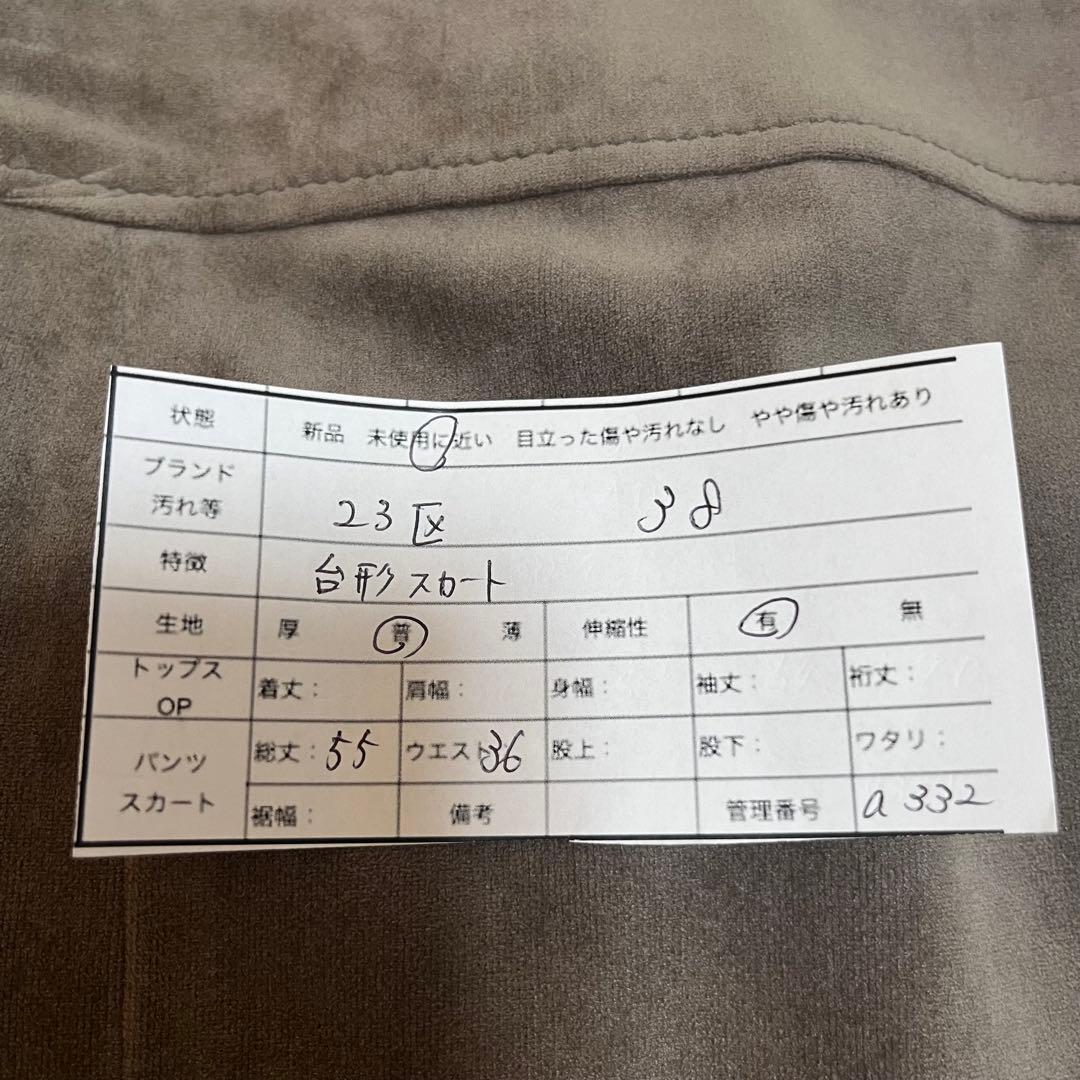 状態 新品 未使用に近い 目立った傷や汚れなし やや傷や汚れあり
ブランド
汚れ等 23区 38
特徴 台形スカート
生地 厚 普 薄 伸縮性 有 無
トップス
OP 着丈： 肩幅： 身幅： 袖丈： 裄丈：
パンツ 総丈：55 ウエスト：36 股上： 股下： ワタリ：
スカート 裾幅： 備考 管理番号 a 332